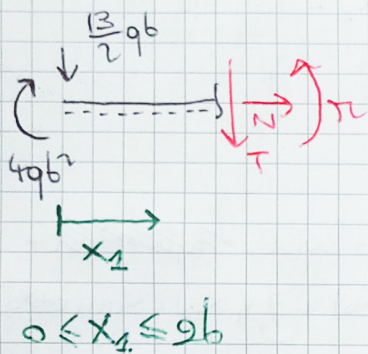 13/2 qb
N
M
T
4qb²
x₁
0 ≤ x₁ ≤ 2b